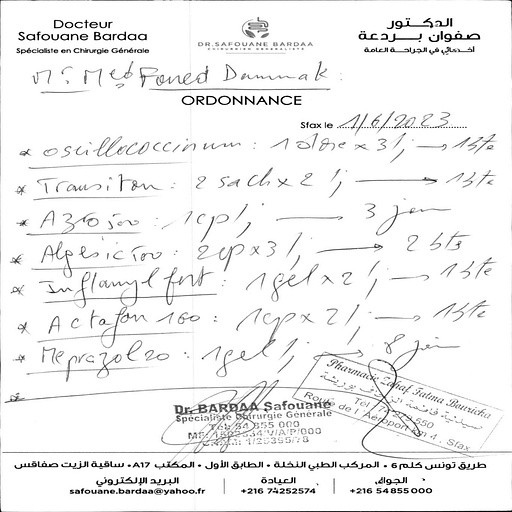 Docteur
Safouane Bardaa
Spécialiste en Chirurgie Générale
DR.SAFOUANE BARDAA
CHIRURGIEN GENERALISTE
الدكتور
صفوان بردعة
أخصائي في الجراحة العامة
Mr Med Foued Dammak :
ORDONNANCE
Sfax le 1/6/2023
* oscillococcinum : 1 dose x 3/j → 1 bte
* Transiton : 2 sach x 2/j → 1 bte
* AZ 500 : 1cp/j — 3 jours
* Algesic 500 : 2cp x 3/j → 2 bts
* Inflamyl fort : 1gel x 2/j → 1 bte
* Actafon 100 : 1cp x 2/j → 1 bte
* Meprazol 20 : 1gel/j → 8 jours
Dr. BARDAA Safouane
Spécialiste Chirurgie Générale
Tél: 54 855 000
Pharmacie Zahaf Fatma Bouricha
Route de l'Aéroport Sfax
طريق تونس كلم 6 • المركب الطبي النخلة • الطابق الأول • المكتب A17 • ساقية الزيت صفاقس
البريد الإلكتروني
safouane.bardaa@yahoo.fr
العيادة
+216 74252574
الجوال
+216 54855000